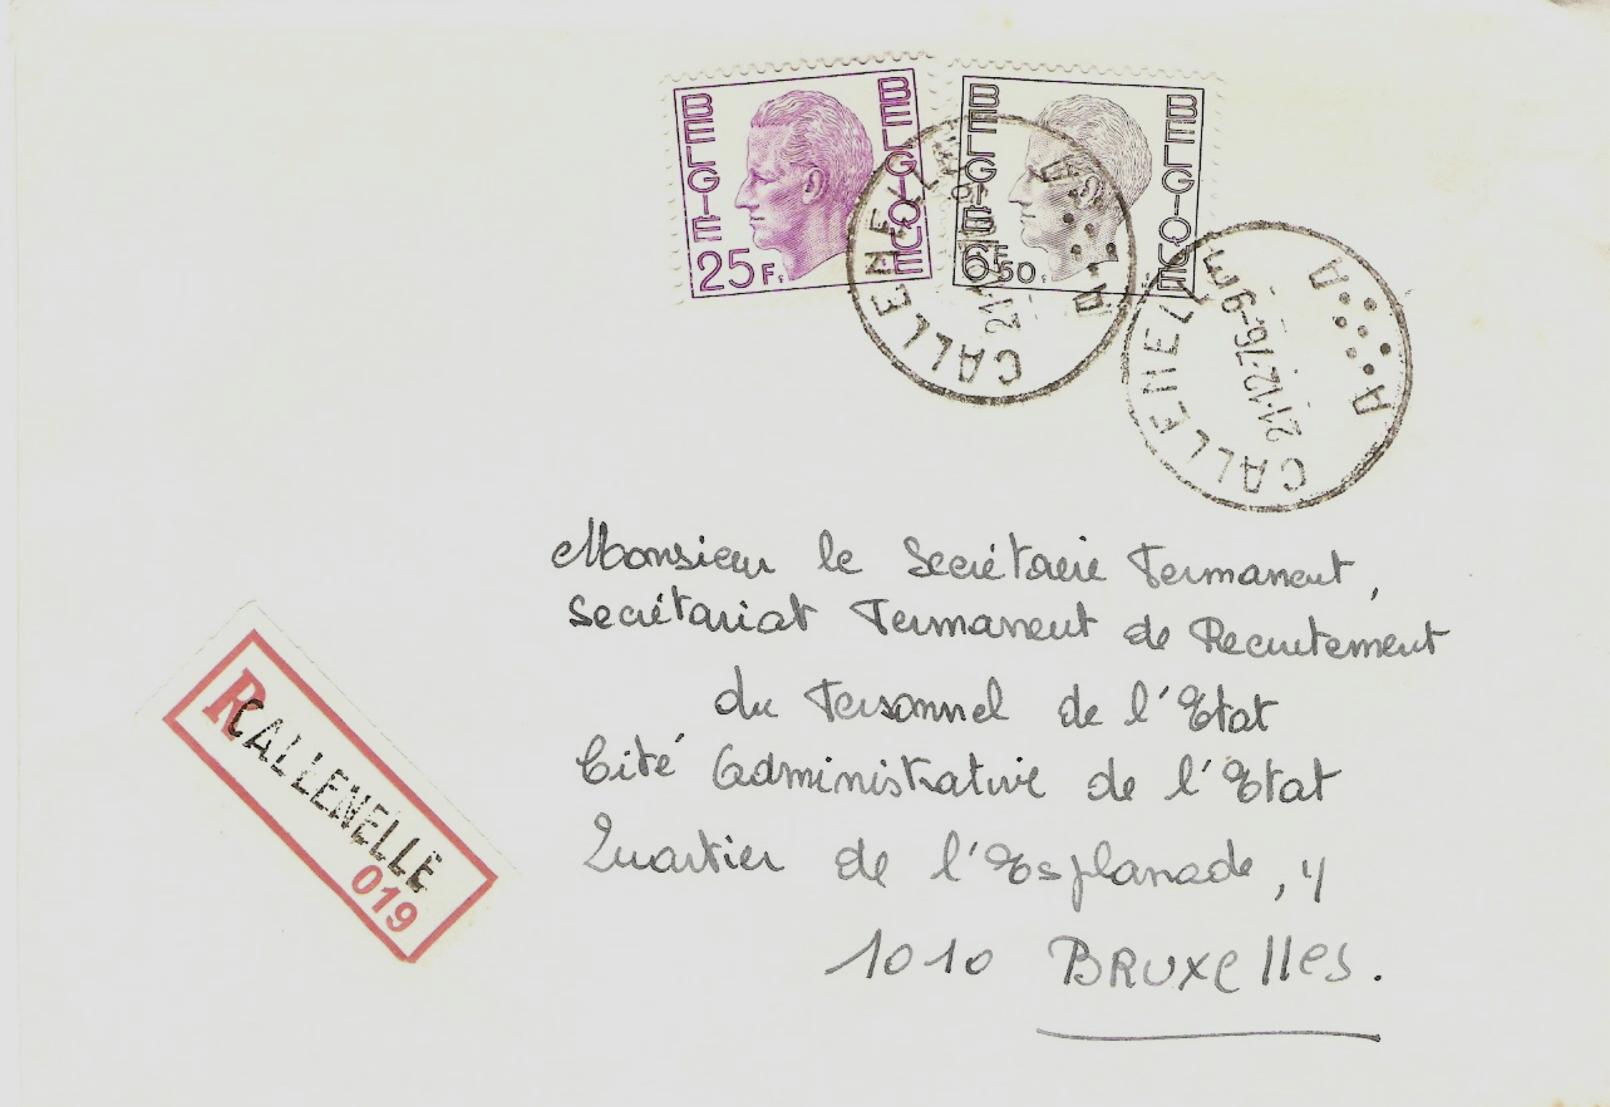 BELGIE BELGIQUE 25F.
BELGIE BELGIQUE 6F50
CALLENELLE 21-1 A A
CALLENELLE 21-12-76-9 A A
R CALLENELLE
019
Monsieur le Secrétaire Permanent,
Secrétariat Permanent de Recrutement
du Personnel de l'Etat
Cité Administrative de l'Etat
Quartier de l'Esplanade, 4
1010 BRUXelles.